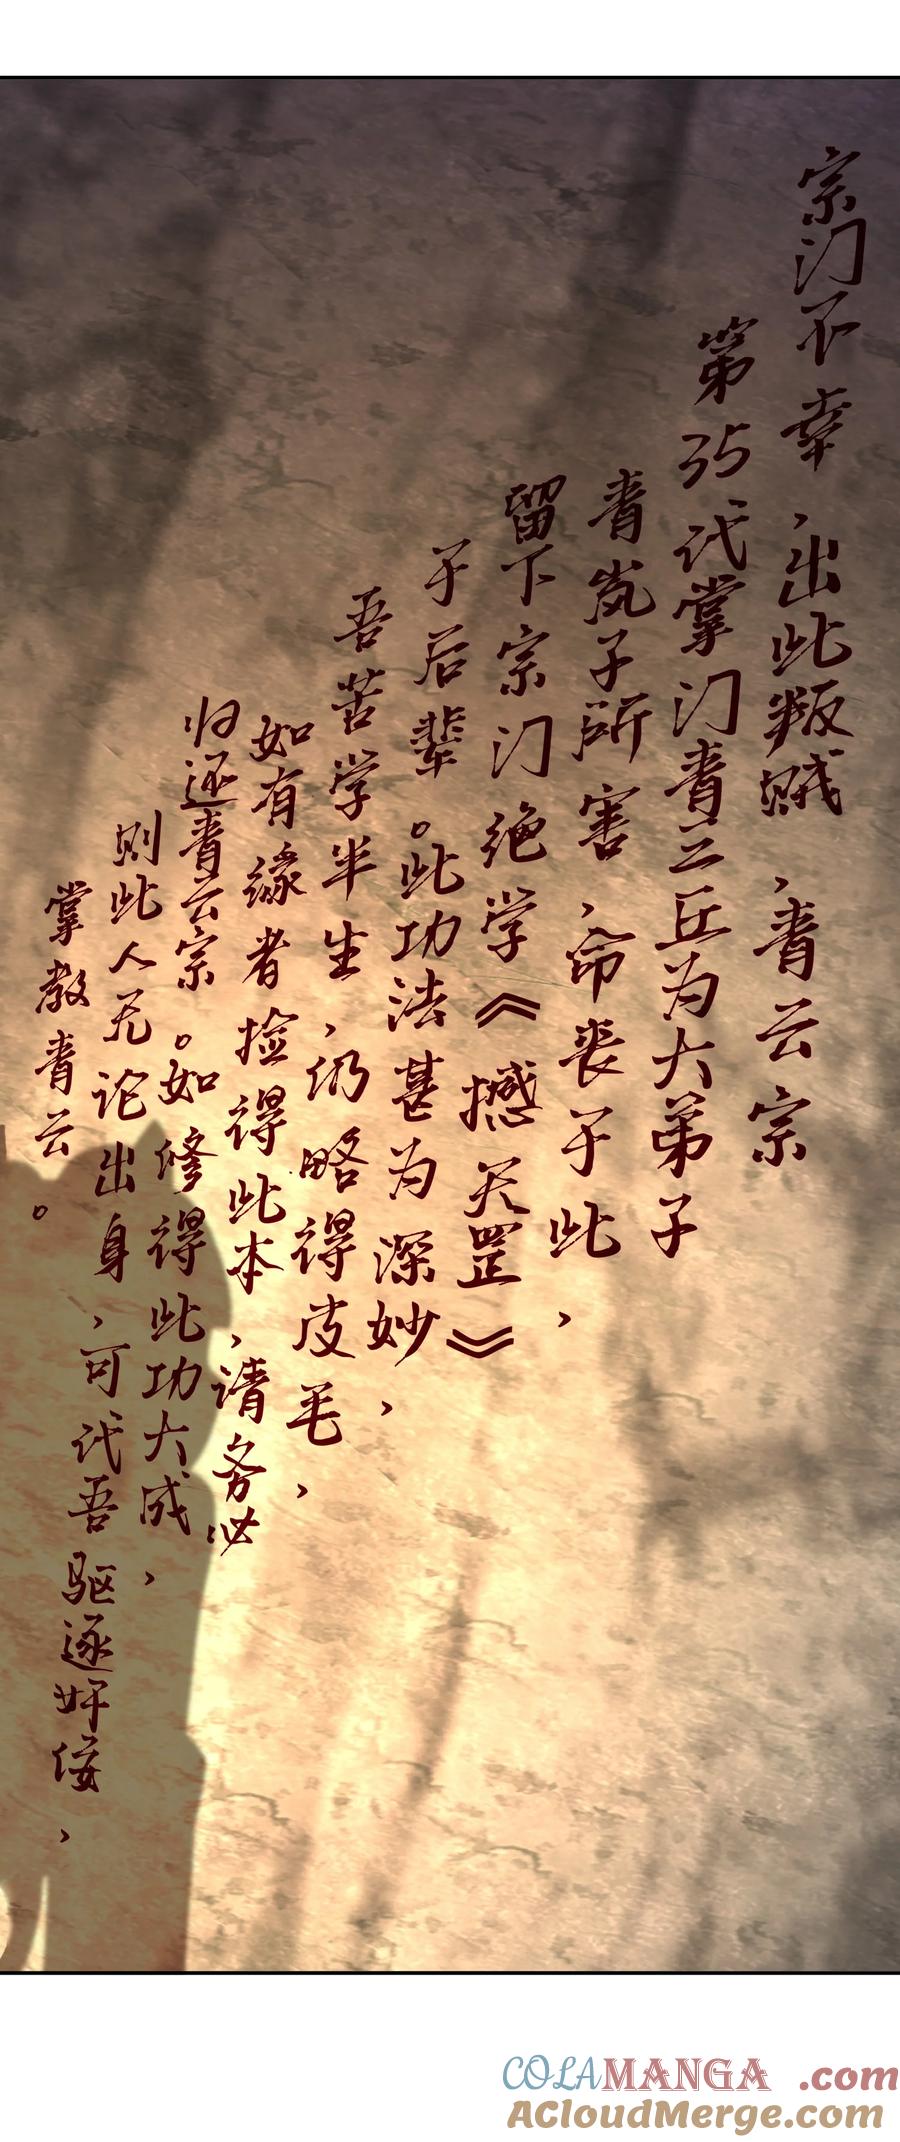 宗门不幸，出此叛贼，青云宗
第35代掌门青云丘为大弟子
青岚子所害，命丧于此，
留下宗门绝学《撼天罡》
于后辈。此功法甚为深妙，
吾苦学半生，仍略得皮毛，
如有缘者捡得此本，请务必
归还青云宗。如修得此功大成，
则此人无论出身，可代吾驱逐奸佞，
掌教青云。
COLAMANGA.com
ACloudMerge.com